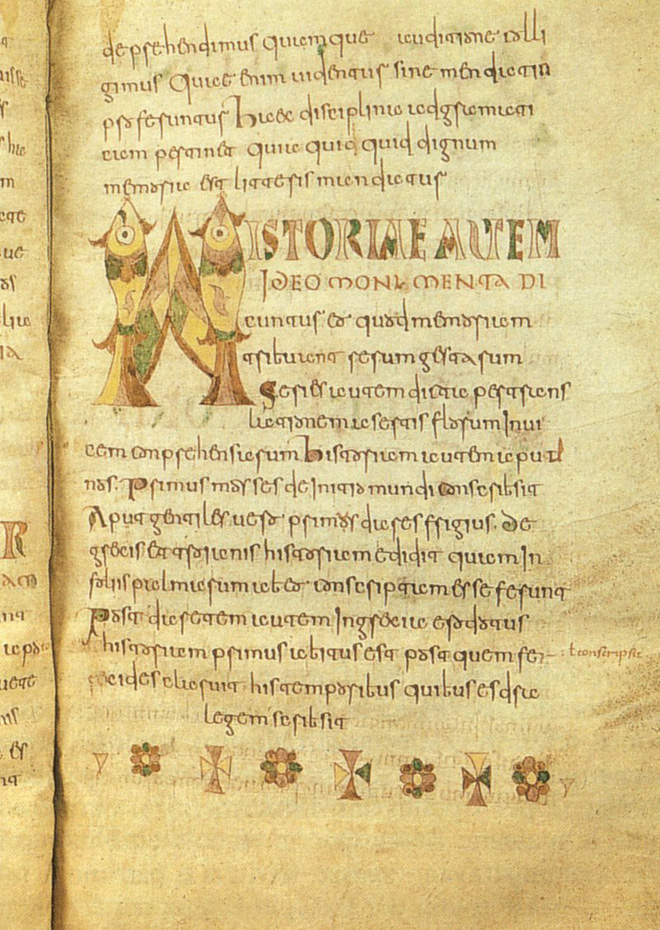 deprehendimus quamque auditione colli
gimus Quae enim uidentur sine mendacio
proferuntur Haec disciplina adgramati
cam pertinet quia quid quid dignum
memoriae est litteris mandatur
HISTORIAE AUTEM
IDEO MONUMENTA DI
cuntur eo quod memoriam
tribuant rerum gestarum
Series autem dicta pertrans
lationem asertis florum Inui
cem conprehensarum historiam autem aput
nos. Primus moyses deInitio mundi conscribsit
Aput gentiles. uero primus dares ffrigius. De
grecis et troianis historiam edidit quam In
foliis palmarum abeo conscriptam esse ferunt
Post daretem autem Ingrecia erodotus
historiam primus abitus est post quem fer
ecides claruit his temporibus quibus esdra
legem scribsit